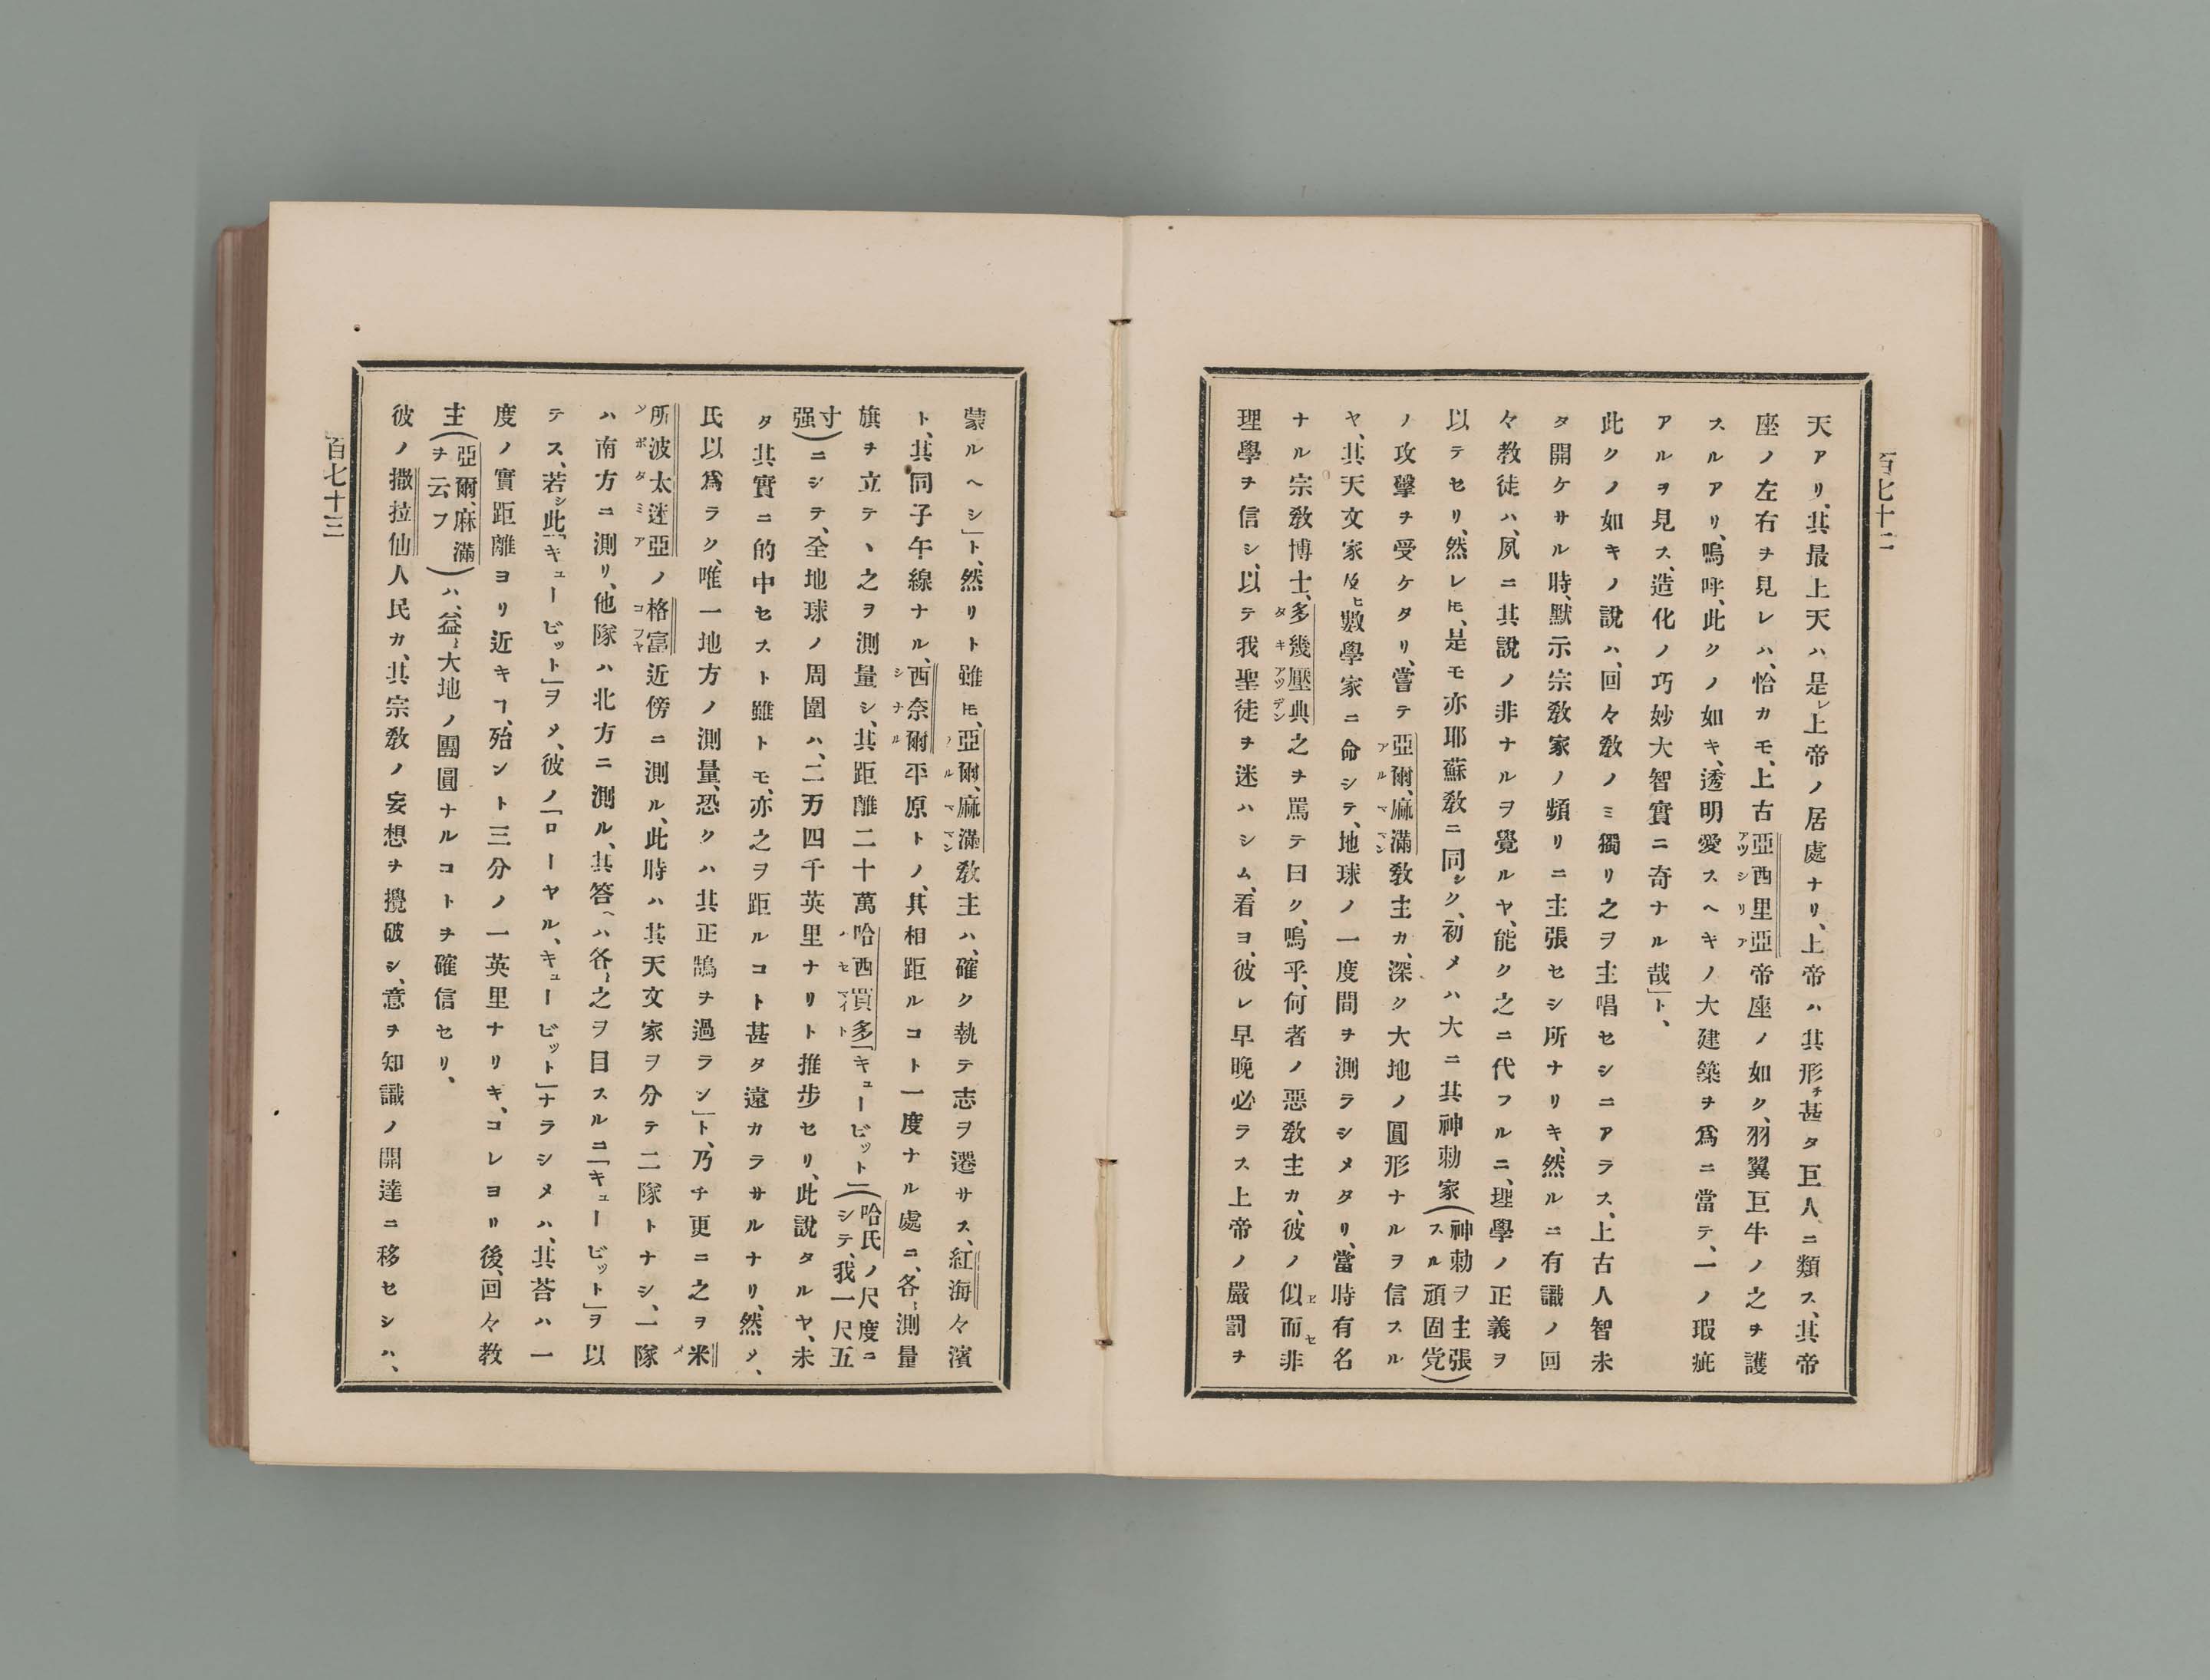 百七十二
天アリ、其最上天ハ是レ上帝ノ居處ナリ、上帝ハ其形チ甚タ巨人ニ類ス、其帝
座ノ左右ヲ見レハ、恰カモ、上古亞西里亞帝座ノ如ク、羽翼巨牛ノ之ヲ護
スルアリ、嗚呼、此クノ如キ、透明愛スヘキノ大建築ヲ爲ニ當テ、一ノ瑕疵
アルヲ見ス、造化ノ巧妙大智實ニ奇ナル哉」ト、
此クノ如キノ說ハ、回々教ノミ獨リ之ヲ主唱セシニアラス、上古人智未
タ開ケサル時、默示宗教家ノ頻リニ主張セシ所ナリキ、然ルニ有識ノ回
々教徒ハ、夙ニ其說ノ非ナルヲ覺ルヤ、能ク之ニ代フルニ、理學ノ正義ヲ
以テセリ、然レ𪜈、是モ亦耶蘇敎ニ同シク、初メハ大ニ其神勅家(神勅ヲ主張スル頑固党)
ノ攻擊ヲ受ケタリ、嘗テ亞爾、麻滿敎主カ、深ク大地ノ圓形ナルヲ信スル
ヤ、其天文家及ヒ數學家ニ命シテ、地球ノ一度間ヲ測ラシメタリ、當時有名
ナル宗敎博士、多幾壓典之ヲ罵テ曰ク、嗚乎、何者ノ惡敎主カ、彼ノ似而非
理學ヲ信シ、以テ我聖徒ヲ迷ハシム、看ヨ、彼レ早晚必ラス上帝ノ嚴罰ヲ
蒙ルヘシ」ト、然リト雖𪜈、亞爾、麻滿敎主ハ、確ク執テ志ヲ遷サス、紅海々濱
ト、其同子午線ナル、西奈爾平原トノ、其相距ルコト一度ナル處ニ、各〻測量
旗ヲ立テヽ之ヲ測量シ、其距離二十萬哈西買多「キュービット」(哈氏ノ尺度ニシテ、我一尺五
寸强)ニシテ、全地球ノ周圍ハ、二万四千英里ナリト推步セリ、此說タルヤ、未
タ其實ニ的中セスト雖トモ、亦之ヲ距ルコト甚タ遠カラサルナリ、然メ、
氏以爲ラク、唯一地方ノ測量、恐クハ其正鵠ヲ過ラン」ト、乃チ更ニ之ヲ米
所波太迷亞ノ格富近傍ニ測ル、此時ハ其天文家ヲ分テ二隊トナシ、一隊
ハ南方ニ測リ、他隊ハ北方ニ測ル、其答ヘハ各〻之ヲ目スルニ「キュービット」ヲ以
テス、若シ此「キュービット」ヲメ、彼ノ「ローヤル、キュービット」ナラシメハ、其荅ハ一
度ノ實距離ヨリ近キヿ、殆ント三分ノ一英里ナリキ、コレヨリ後、回々教
主(亞爾、麻滿ヲ云フ)ハ、益〻大地ノ團圓ナルコトヲ確信セリ、
彼ノ撒拉仙人民カ、其宗敎ノ妄想ヲ攪破シ、意ヲ知識ノ開達ニ移セシハ、
百七十三